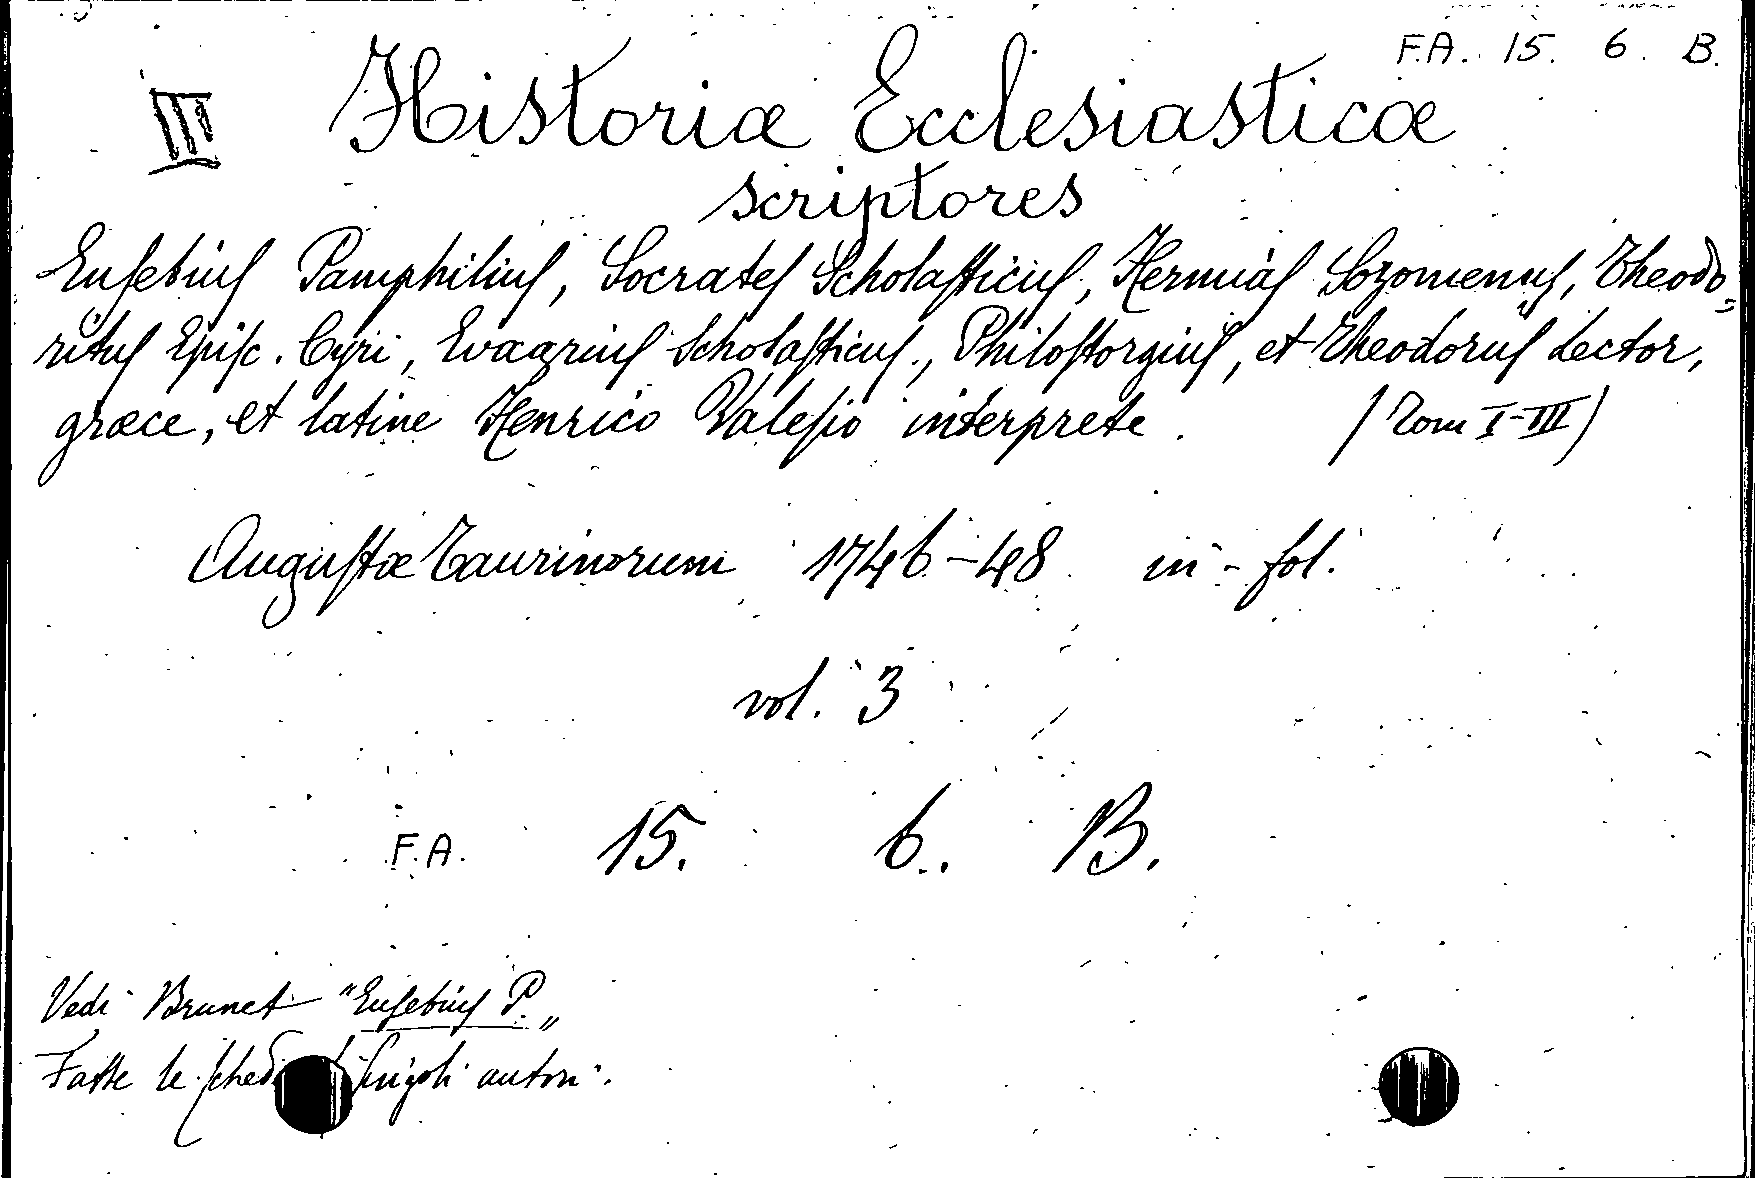 F.A. 15. 6. B.
III Historiæ Ecclesiasticæ
scriptores
Euſebiuſ Pamphiliuſ, Socrateſ Scholaſticuſ, Hermiaſ Sozomenuſ, Theodo-
rituſ Epiſc. Cyri, Evagriuſ Scholaſticuſ, Philoſtorgiuſ, et Theodoruſ Lector,
græce, et latine Henrico Valeſio interprete. (Tom I-III)
Auguſtæ Taurinorum 1746-48 in-fol.
vol. 3
F.A. 15. 6. B.
Vedi Brunet "Euſebiuſ P.„
Fatte le ſingoli autori.